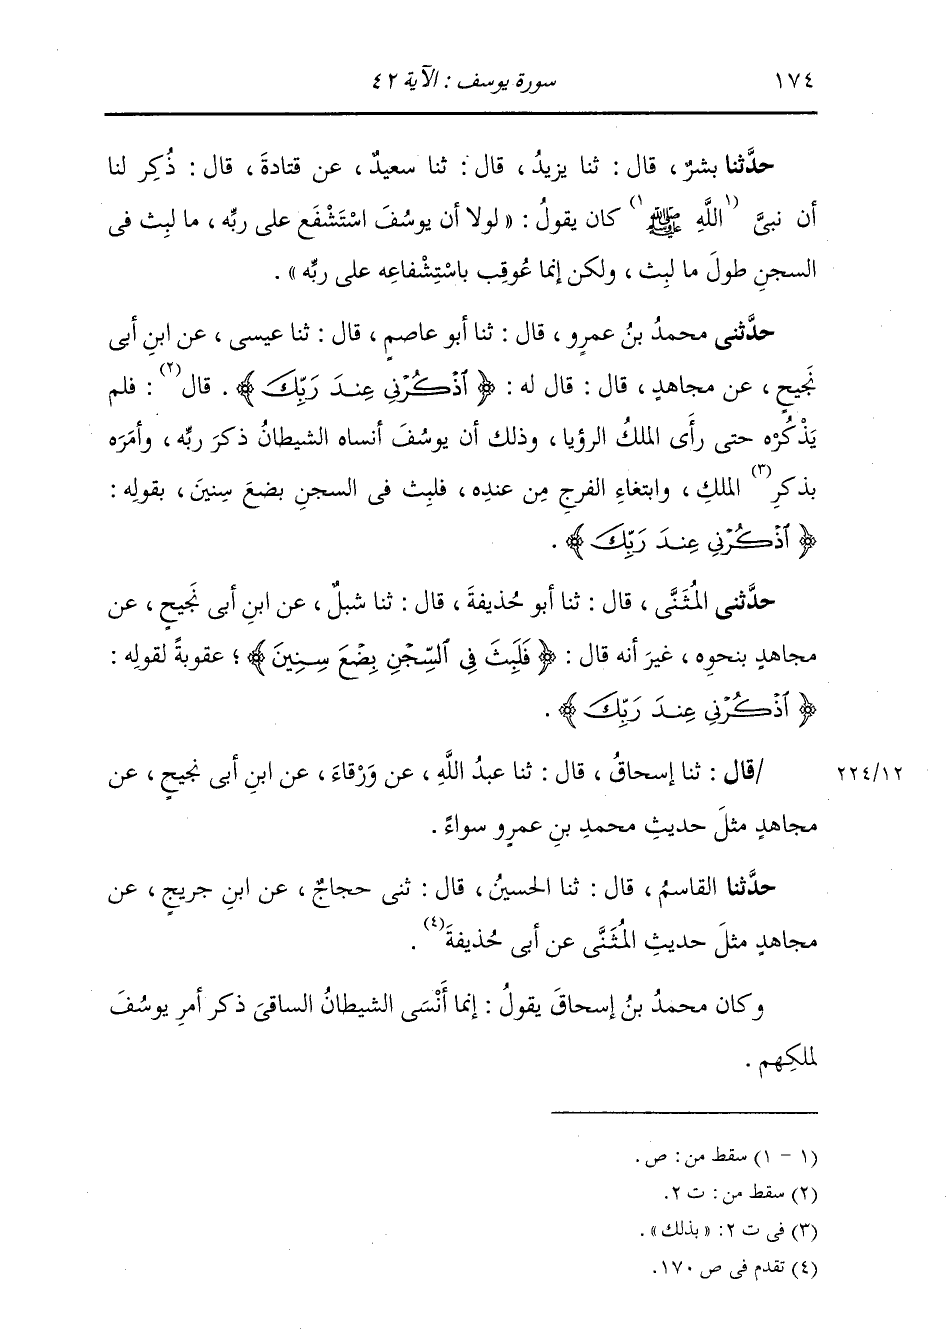 ١٧٤ سورة يوسف : الآية ٤٢
حدَّثنا بشرٌ ، قال : ثنا يزيدُ ، قال : ثنا سعيدٌ ، عن قتادةَ ، قال : ذُكِر لنا
أن نبىَّ (١) اللَّهِ ﷺ (١) كان يقولُ : « لولا أن يوسُفَ اسْتَشْفَع على ربِّه ، ما لبِث فى
السجنِ طولَ ما لبِث ، ولكن إنما عُوقِب باسْتِشْفاعِه على ربِّه » .
حدَّثنى محمدُ بنُ عمرٍو ، قال : ثنا أبو عاصمٍ ، قال : ثنا عيسى ، عن ابنِ أبى
نَجيحٍ ، عن مجاهدٍ ، قال : قال له : ﴿ ٱذْكُرْنِي عِندَ رَبِّكَ ﴾ . قال (٢) : فلم
يَذْكُرْه حتى رأَى الملكُ الرؤيا ، وذلك أن يوسُفَ أنساه الشيطانُ ذكرَ ربِّه ، وأمَرَه
بذكرِ (٣) الملكِ ، وابتغاءِ الفرجِ مِن عندِه ، فلبِث فى السجنِ بضعَ سِنينَ ، بقولِه :
﴿ ٱذْكُرْنِي عِندَ رَبِّكَ ﴾ .
حدَّثنى المُثَنَّى ، قال : ثنا أبو حُذيفةَ ، قال : ثنا شبلٌ ، عن ابنِ أبى نَجيحٍ ، عن
مجاهدٍ بنحوِه ، غيرَ أنه قال : ﴿ فَلَبِثَ فِي ٱلسِّجْنِ بِضْعَ سِنِينَ ﴾ ؛ عقوبةً لقولِه :
﴿ ٱذْكُرْنِي عِندَ رَبِّكَ ﴾ .
٢٢٤/١٢ /قال : ثنا إسحاقُ ، قال : ثنا عبدُ اللَّهِ ، عن وَرْقاءَ ، عن ابنِ أبى نجيحٍ ، عن
مجاهدٍ مثلَ حديثِ محمدِ بنِ عمرٍو سواءً .
حدَّثنا القاسمُ ، قال : ثنا الحسينُ ، قال : ثنى حجاجٌ ، عن ابنِ جريجٍ ، عن
مجاهدٍ مثلَ حديثِ المُثَنَّى عن أبى حُذيفةَ (٤) .
وكان محمدُ بنُ إسحاقَ يقولُ : إنما أَنْسَى الشيطانُ الساقىَ ذكر أمرِ يوسُفَ
لملكِهم .
(١ - ١) سقط من : ص .
(٢) سقط من : ت ٢.
(٣) فى ت ٢: « بذلك » .
(٤) تقدم فى ص ١٧٠.